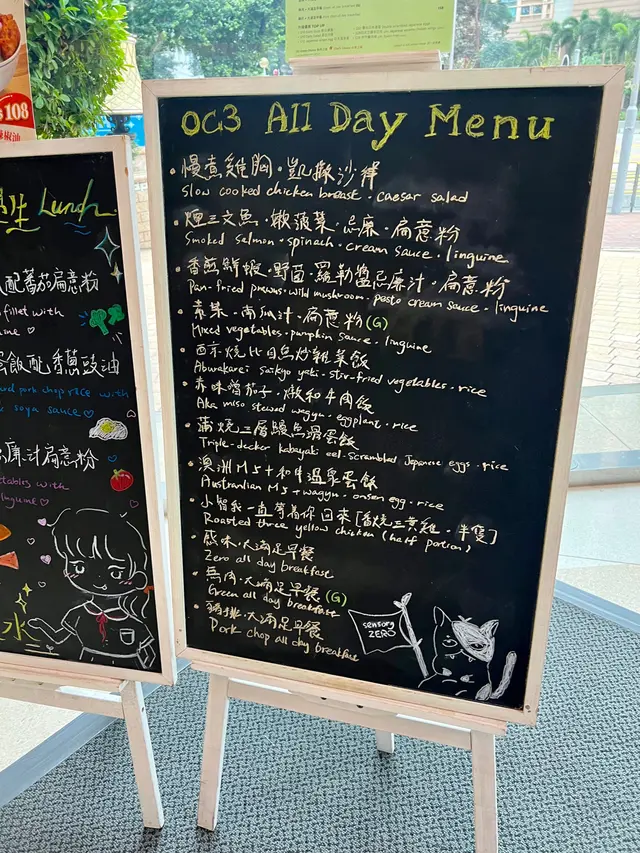 108
辣椒油
生 Lunch
配蕃茄扁意粉
fillet with
飯配香蔥豉油
pork chop rice with
soya sauce
汁扁意粉
tables with
linguine
水
OC3 All Day Menu
慢煮雞胸・凱撒沙律
Slow cooked chicken breast・caesar salad
煙三文魚・嫩菠菜・忌廉・扁意粉
Smoked salmon・spinach・cream sauce・linguine
香煎鮮蝦・野菌・羅勒醬忌廉汁・扁意粉
Pan-fried prawns・wild mushroom・pesto cream sauce・linguine
素菜・南瓜汁・扁意粉 (G)
Mixed vegetables・pumpkin sauce・linguine
西京燒比目魚炒雜菜飯
Aburakarei saikyo yaki・stir-fried vegetables・rice
赤味噌茄子・燉和牛肉飯
Aka miso stewed wagyu・eggplant・rice
蒲燒三層鰻魚滑蛋飯
Triple-decker kabayaki eel・scrambled Japanese eggs・rice
澳洲M5+和牛溫泉蛋飯
Australian M5+ wagyu・onsen egg・rice
小智我一直等着你回來 [香燒三黃雞・半隻]
Roasted three yellow chicken (half portion)
感味・大滿足早餐
Zero all day breakfast
無肉・大滿足早餐 (G)
Green all day breakfast
豬排・大滿足早餐
Pork chop all day breakfast
sensory
ZERO